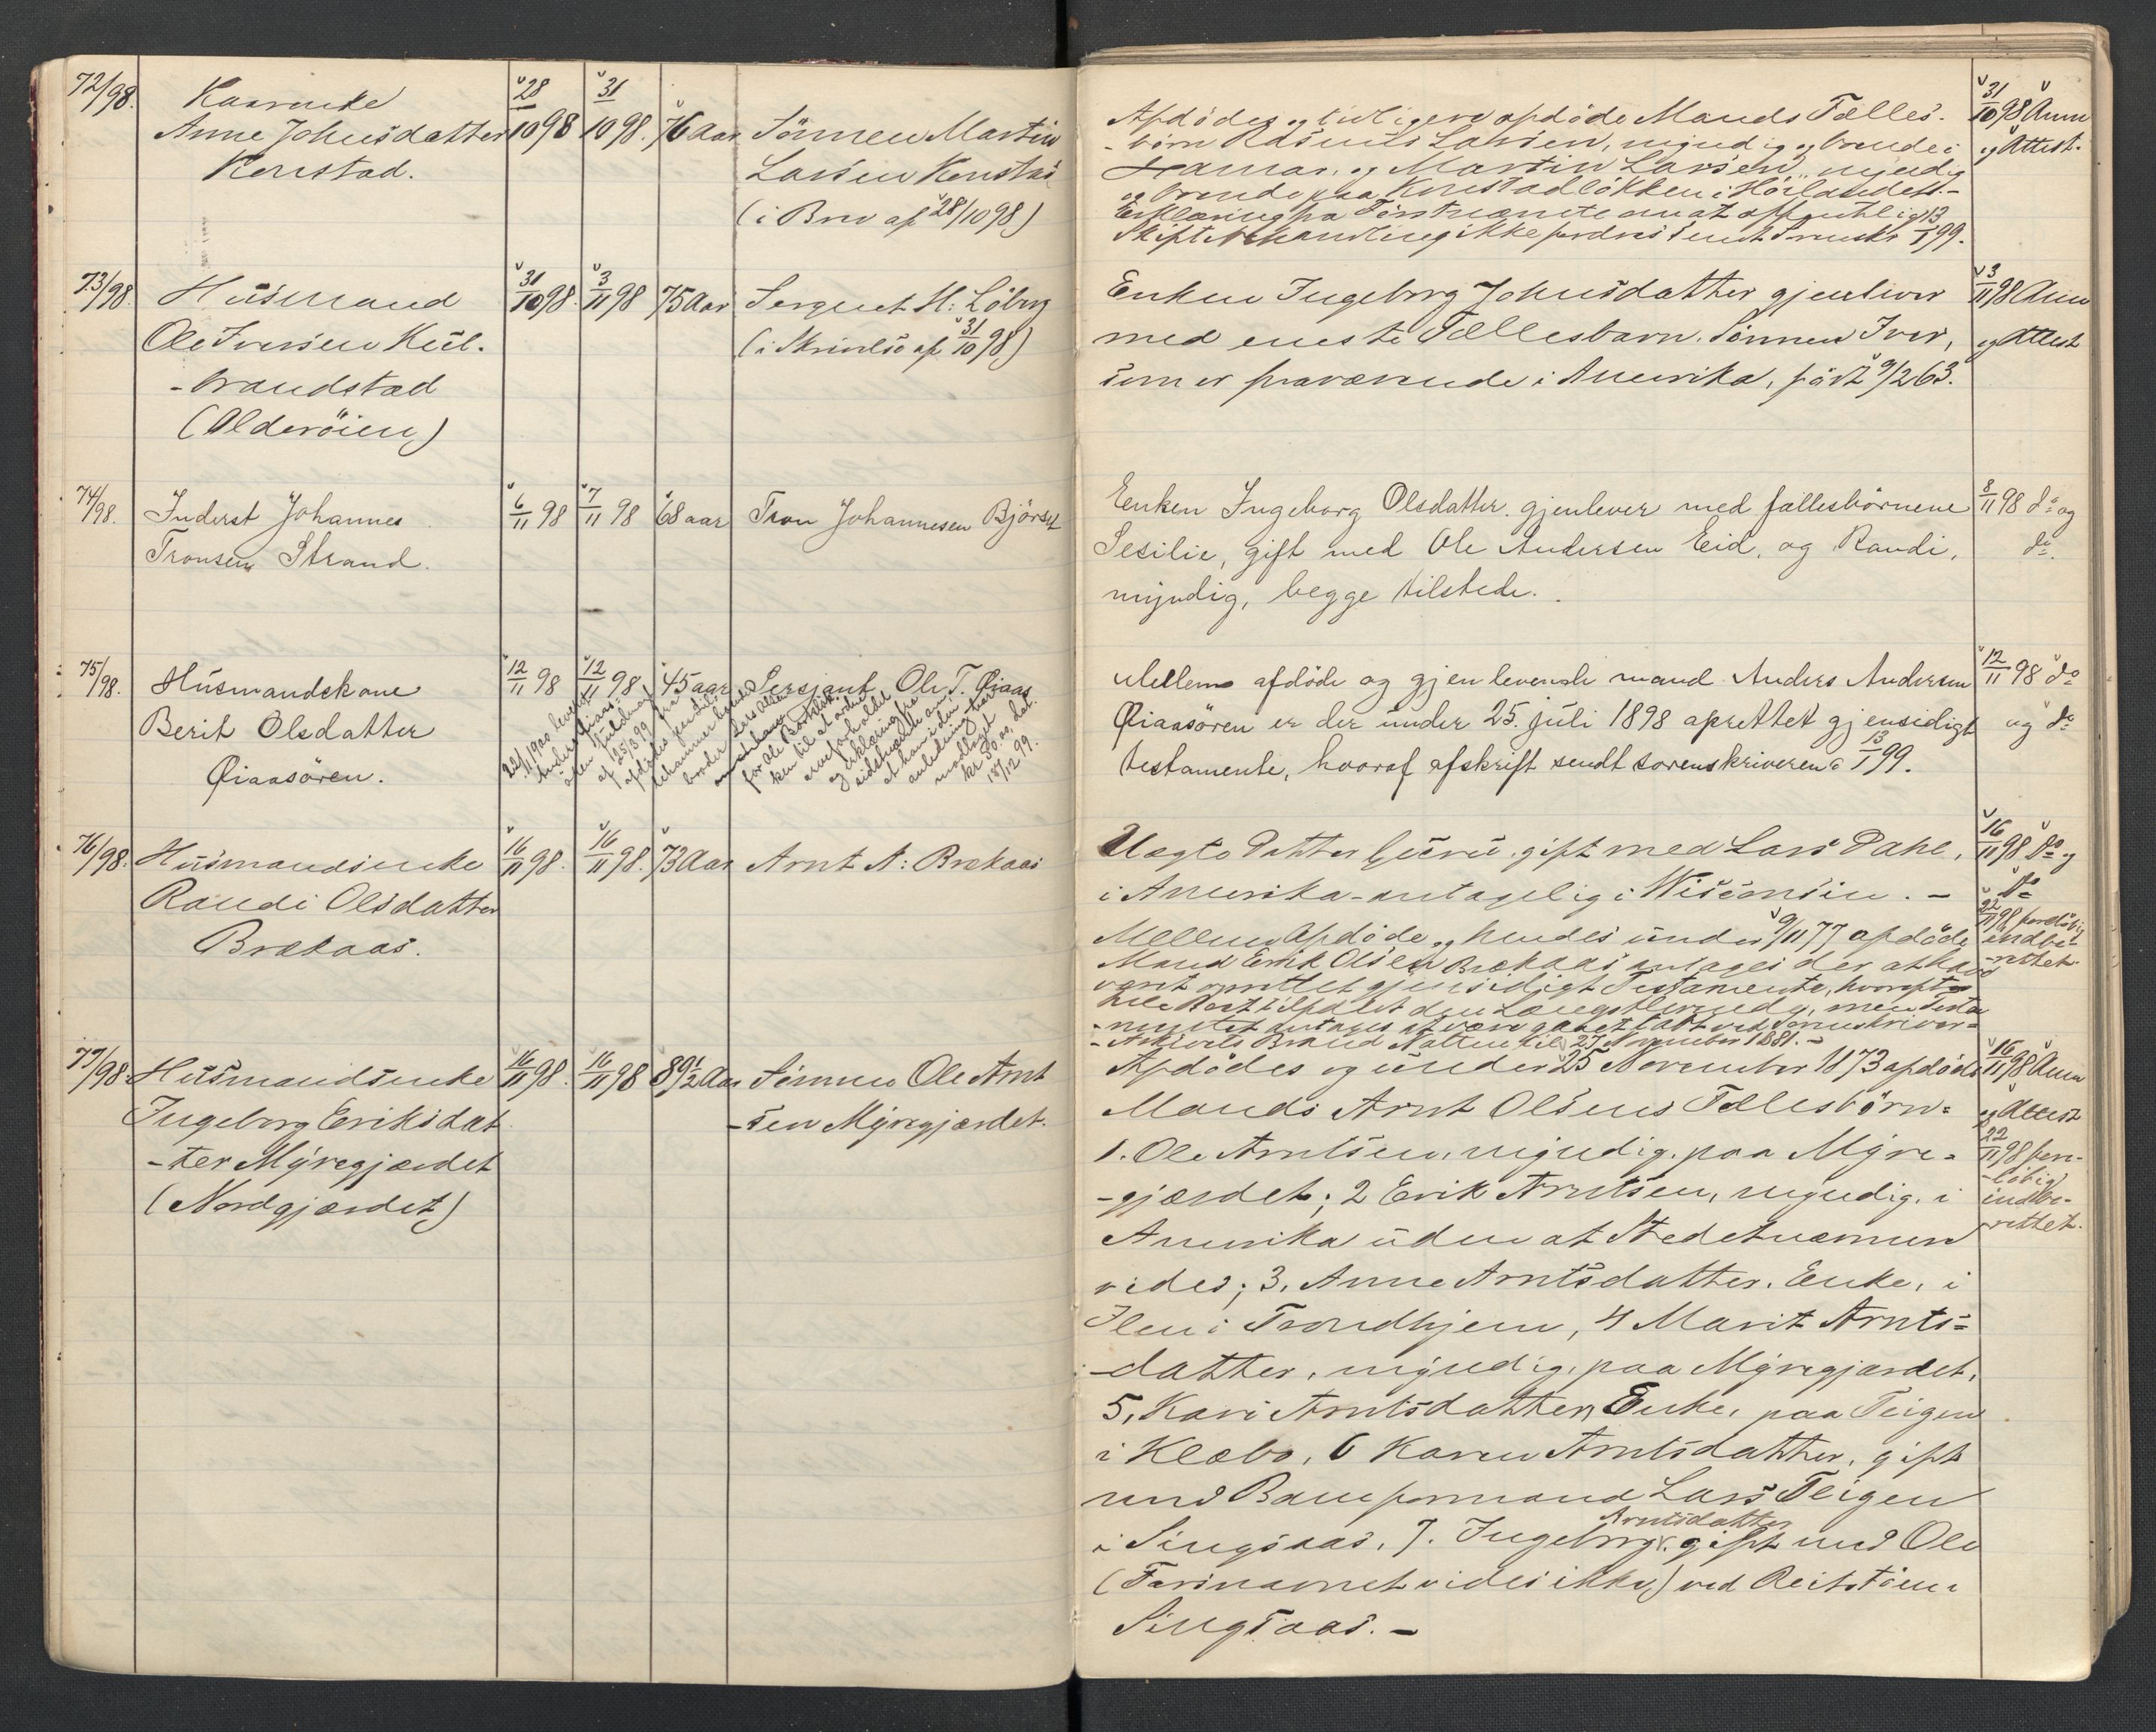 72/98.
Kaarenke
Anne Johnsdatter
Kenstad.
28/10 98
31/10 98.
76 Aar
Sönnen Martin
Larsen Kenstad
(i Brev af 28/10 98)
Afdödes og tidligere afdöde Mands Fælles-
-börn Rasmus Larsen, myndig og boende i
Hamar, og Martin Larsen, myndig
og boende paa Kenstadlökken i Hölandet.-
Erklæring fra Förstnævnte om at offentlig
Skiftebehandling ikke fordres sendt 13/1 99.
31/10 98 Anm
og Attest.
73/98.
Husmand
Ole Iversen Kul-
-brandstad
(Olderöien)
31/10 98.
3/11 98
75 Aar
Sergent H: Löberg
(i Skrivelse af 31/10 98)
Enken Ingeborg Johnsdatter gjenlever
med eneste Fællesbarn, Sönnen Iver,
som er fraværende i Amerika, född 9/2 63.
3/11 98 Anm
og Attest
74/98.
Inderst Johannes
Tronsen Strand.
6/11 98
7/11 98
68 aar
Tron Johannesen Björset
Enken Ingeborg Olsdatter gjenlever med fællesbörnene
Sesilie, gift med Ole Andersen Eid, og Randi,
myndig, begge tilstede.
8/11 98 do og
do.
75/98.
Husmandskone
Berit Olsdatter
Qiaasören.
12/11 98
12/11 98
45 aar
Sersjant Ole T. Qiaas
22/1 1900 levert
Anders Qiaas-
ören
af 25/3 99 fra
afdödes
broder Lars Olsen
for Ole
og erklæring fra
at han i den
anledning har
modtaget
kr 50.00, dat.
18/12 99.
Mellem afdöde og gjenlevende mand Anders Andersen
Qiaasören er der under 25. juli 1898 oprettet gjensidigt
testamente, hvoraf afskrift sendt sorenskriveren 13/1 99.
12/11 98 do
og do
76/98.
Husmandsenke
Randi Olsdatter
Brækaas.
16/11 98.
16/11 98.
73 Aar
Arnt A: Brækaas
Uægte Datter Guru, gift med Lars Dahl,
i Amerika - antagelig i Wisconsin. -
Mellem Afdöde og hendes under 9/11 77 afdöde
Mand Erik Olsen Brækaas antages der at have
været oprettet gjensidigt Testamente, hvorefter
hele Boet tilfaldt den Længstlevende, men Testa
-mentet antages at være gaaet tabt ved Sorenskriver-
-Arkivets Brand Natten til 27 November 1881. -
16/11 98 do og
do
22/11 98 forelöbig
indbe-
-rettet.
77/98.
Husmandsenke
Ingeborg Eriksdat
-ter Myregjærdet
(Nordgjærdet)
16/11 98.
16/11 98
89½ Aar
Sönnen Ole Arnt
-sen Myregjærdet.
Afdödes og under 25 November 1873 afdöde
Mands Arnt Olsens Fællesbörn:
1. Ole Arntsen, myndig, paa Myre-
-gjærdet; 2 Erik Arntsen, myndig, i
Amerika uden at Stedetsnavnet
vides; 3, Anne Arntsdatter, Enke, i
Ilen i Trondhjem, 4 Marit Arnts-
-datter, myndig, paa Myregjærdet,
5, Kari Arntsdatter, Enke, paa Teigen
i Klæbo, 6 Karen Arntsdatter, gift
med Baneformand Lars Teigen
i Singsaas, 7. Ingeborg Arntsdatter gift med Ole
(Farsnavnet vides ikke) ved Reitstöen i
Singsaas. -
16/11 98 Anm
og Attest
22/11 98 fore-
-löbig
indbe-
-rettet.